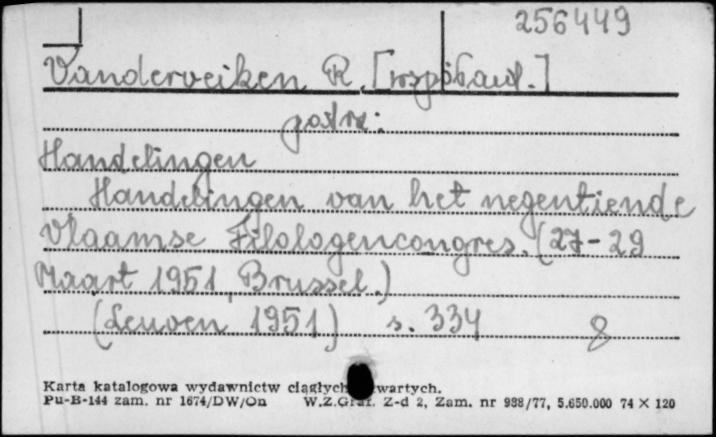 256449
Vanderveiken R. [współaut.]
patrz:
Handelingen
Handelingen van het negentiende
Vlaamse Filologencongres. (27-29
Maart 1951, Brussel.)
(Leuven 1951) s. 334 8
Karta katalogowa wydawnictw ciągłych
Pu-B-144 zam. nr 1674/DW/On W.Z.Graf. Z-d 2, Zam. nr 988/77, 5.650.000 74 X 120